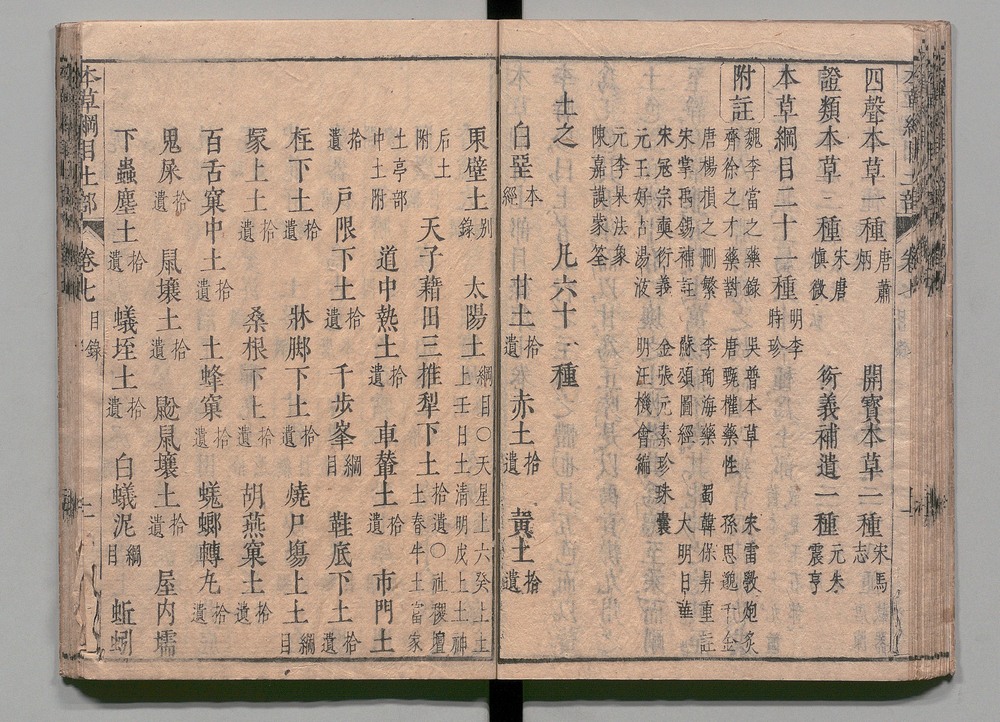 四聲本草一種 唐蕭炳 開寶本草二種 宋馬志
證類本草 種 宋唐慎微 衍義補遺一種 元朱震亨
本草綱目二十一種 明李時珍
附註 魏李當之藥錄 吳普本草 宋雷斆炮炙
齊徐之才藥對 唐甄權藥性 孫思邈千金
唐楊損之刪繁 李珣海藥 蜀韓保昇重註
宋掌禹錫補註 蘇頌圖經 大明日華
宋寇宗奭衍義 金張元素珍珠囊
元王好古湯液 明汪機會編
元李杲法象
陳嘉謨蒙筌
土之一 凡六十一種
白堊 本經 甘土 拾遺 赤土 拾遺 黃土 拾遺
東壁土 別錄 太陽土 綱目○天星上土六癸上土
后土附 天子藉田三推犁下土 拾遺○社稷壇土春牛土富家土亭部中土附
道中熱土 拾遺 車輦土 拾遺 市門土
拾遺 戶限下土 拾遺 千步峯 綱目 鞋底下土 拾遺
柱下土 拾遺 牀腳下土 拾遺 燒尸場上土 綱目
冢上土 拾遺 桑根下土 拾遺 胡燕窠土 拾遺
百舌窠中土 拾遺 土蜂窠 拾遺 蜣蜋轉丸 拾遺
鬼屎 拾遺 鼠壤土 拾遺 鼢鼠壤土 拾遺 屋內壖
下蟲塵土 拾遺 蟻垤土 拾遺 白蟻泥 綱目 蚯蚓
本草綱目土部 卷七 目錄